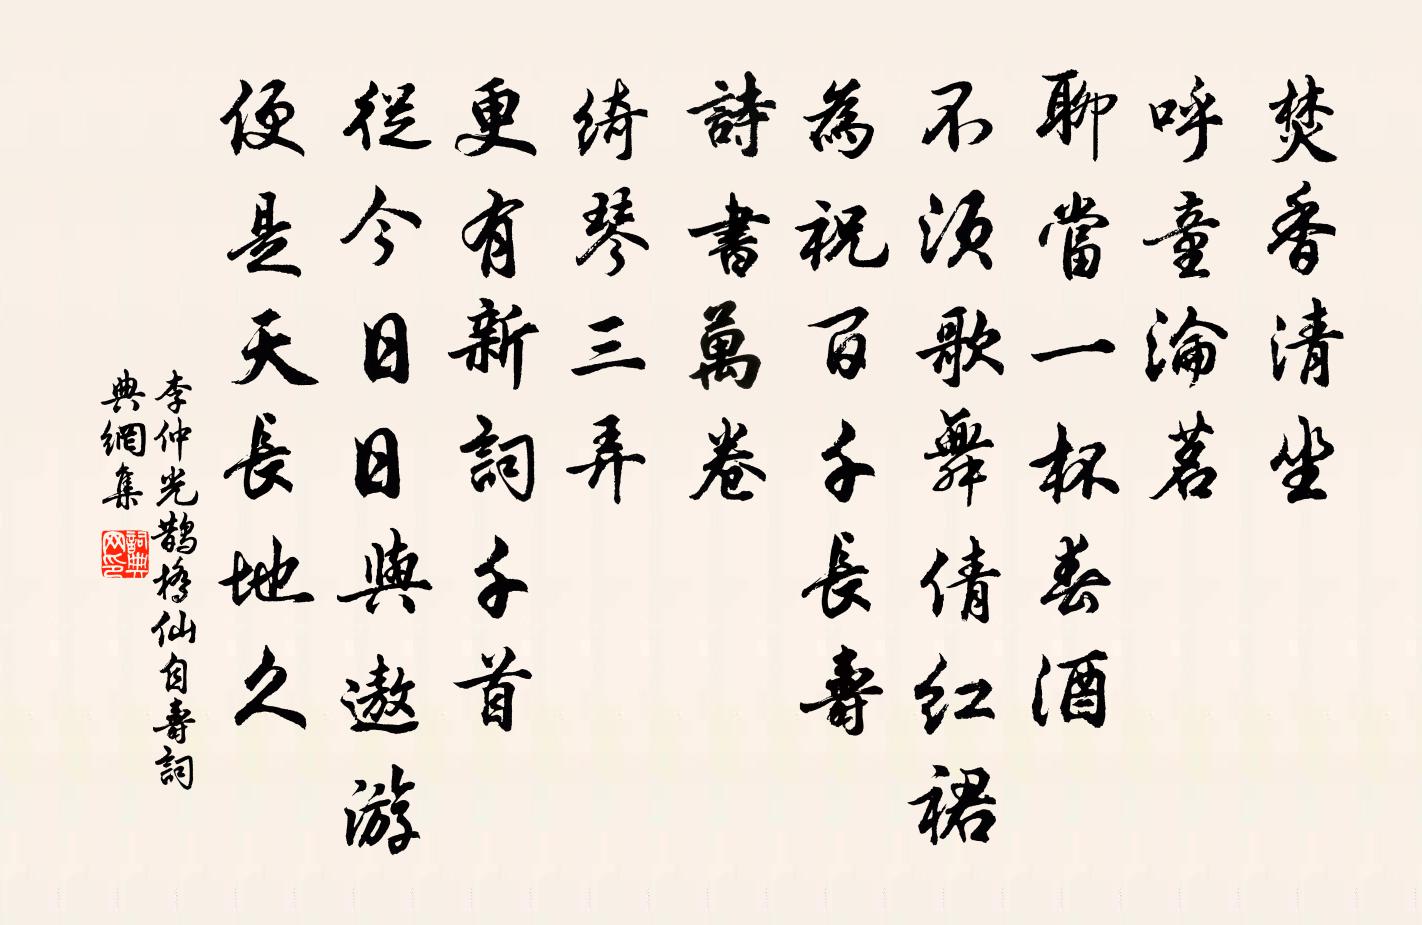 焚香清坐
呼童淪茗
聊當一杯春酒
不須歌舞倩紅裙
為祝百千長壽
詩書萬卷
綺琴三弄
更有新詞千首
從今日日與遨游
便是天長地久
李仲光鵲橋仙自壽詞
典網集
詞典
网印